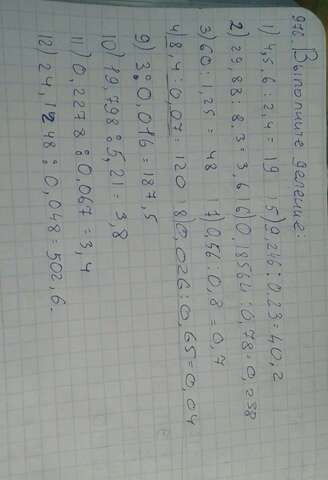 976. Выполните деление:
1) 4,5,6 : 2,4 = 19 5) 9,246 : 0,23 = 40,2
2) 29,88 : 8,3 = 3,6 6) 0,18564 : 0,78 = 0,238
3) 60 : 1,25 = 48 7) 0,56 : 0,8 = 0,7
4) 8,4 : 0,07 = 120 8) 0,026 : 0,65 = 0,04
9) 3 : 0,016 = 187,5
10) 19,798 : 5,21 = 3,8
11) 0,2278 : 0,067 = 3,4
12) 24,1248 : 0,048 = 502,6.